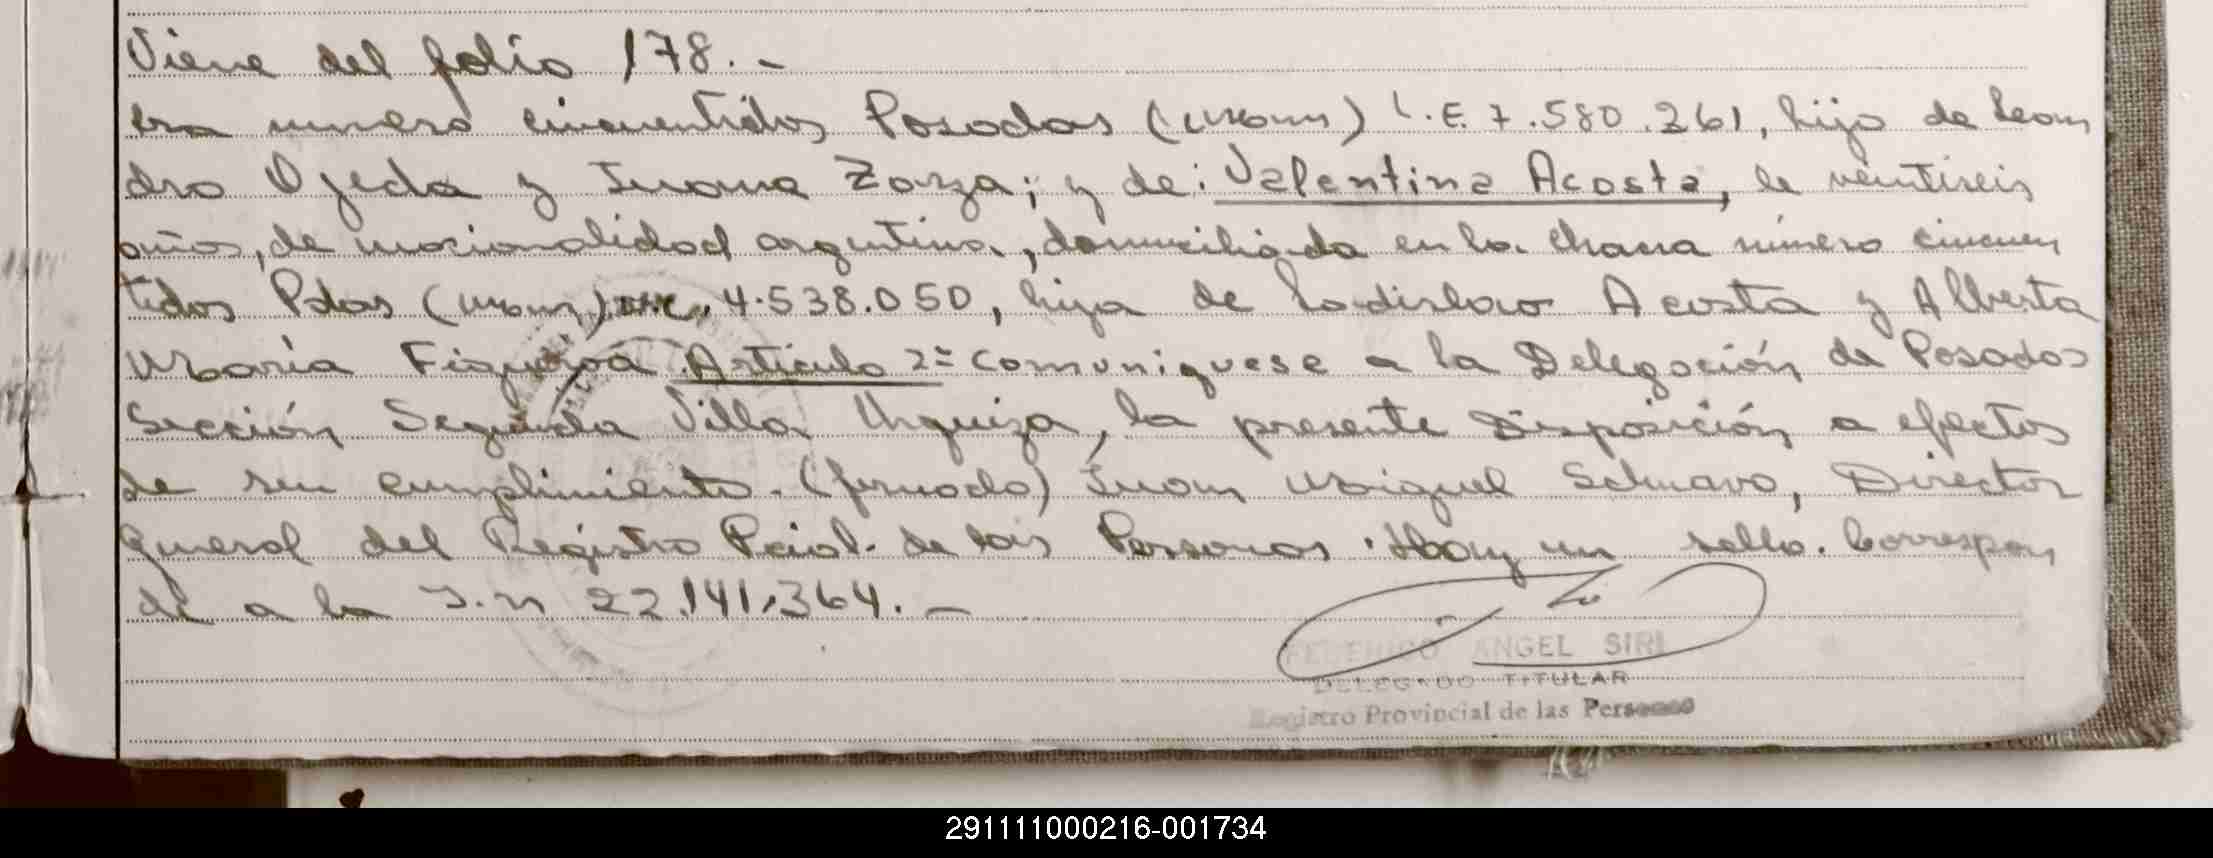 Viene del folio 178.-
cra numero cincuentidos Posadas (Mnes) L.E. 7.580.261, hijo de Lean
dro Ojeda y Juana Zarza; y de: Valentina Acosta, de veintiseis
años, de nacionalidad argentina, domiciliada en la chacra número cincuen
tidos Pdas (Mnes) 4.538.050, hija de Ladislao Acosta y Alberta
María Figueroa Artículo 2º Comuniquese a la Delegación de Posadas
Sección Segunda Villa Urquiza, la presente Disposición a efectos
de su cumplimiento. (firmado) Juan Miguel Director
General del Registro Pcial. de las Personas. Hay un sello. Correspon
de a la I.n 22.141.364.-
FEDERICO ANGEL SIRI
DELEGADO TITULAR
Registro Provincial de las Personas
291111000216-001734